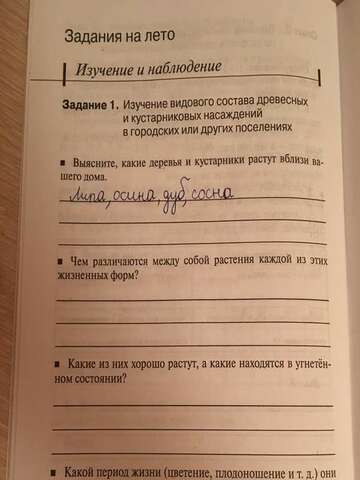 Задания на лето
Изучение и наблюдение
Задание 1. Изучение видового состава древесных
и кустарниковых насаждений
в городских или других поселениях
▪ Выясните, какие деревья и кустарники растут вблизи ва-
шего дома.
Липа, осина, дуб, сосна
▪ Чем различаются между собой растения каждой из этих
жизненных форм?
▪ Какие из них хорошо растут, а какие находятся в угнетён-
ном состоянии?
▪ Какой период жизни (цветение, плодоношение и т. д.) они